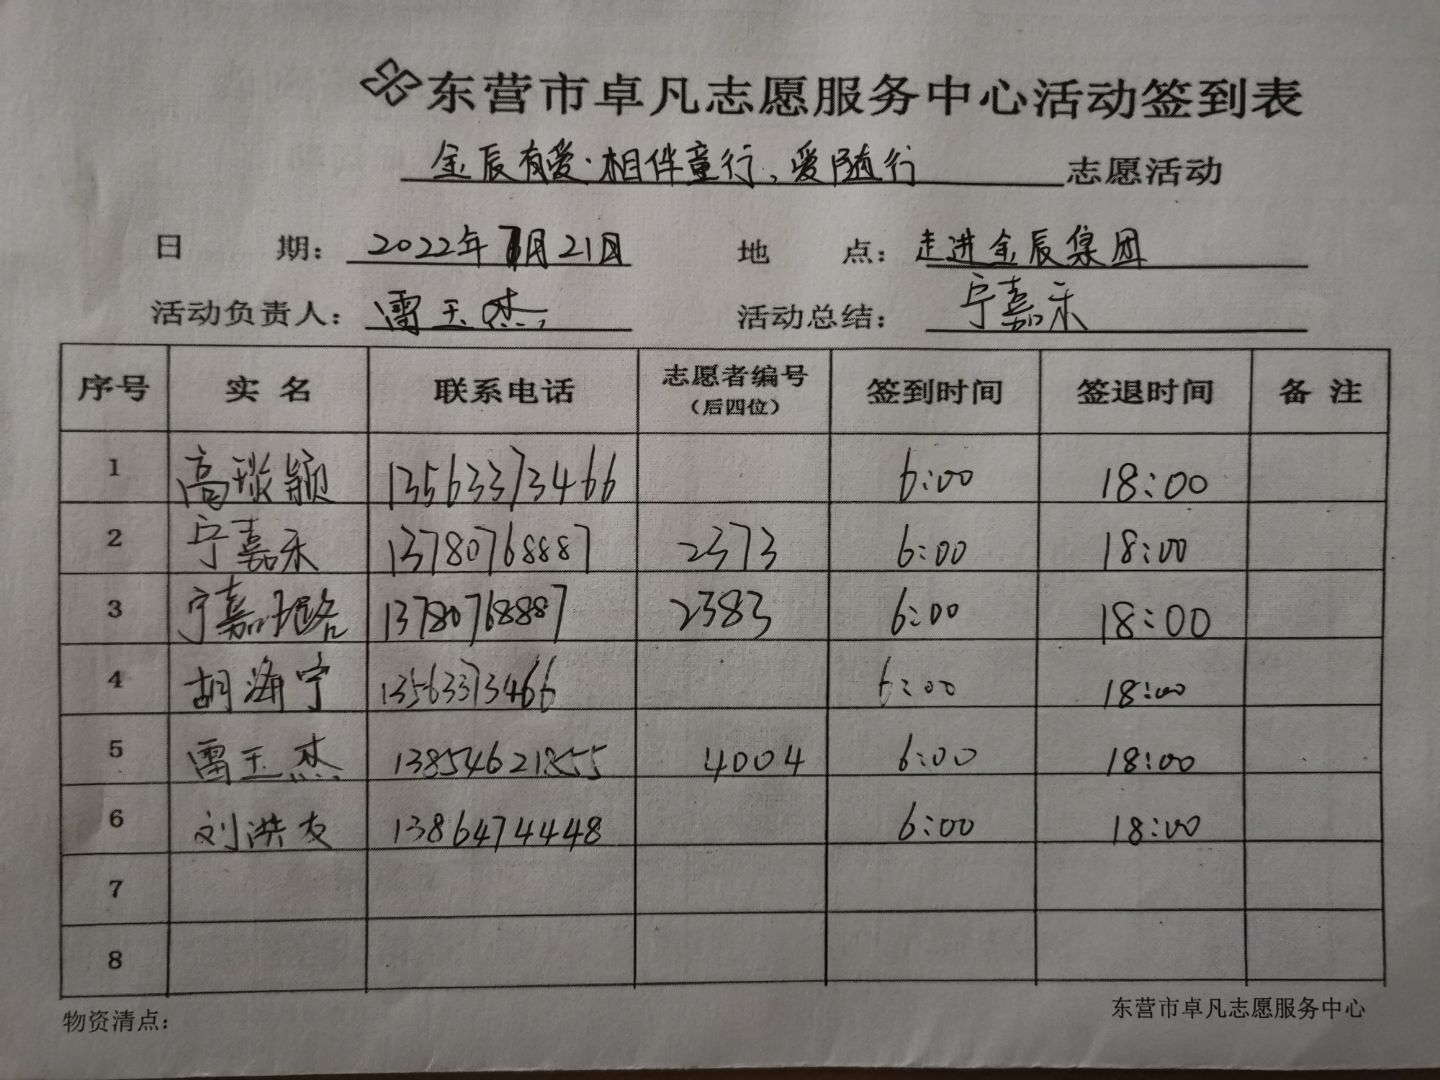 东营市卓凡志愿服务中心活动签到表
金辰有爱·相伴童行、爱随行 志愿活动
日 期: 2022年7月21日 地 点: 走进金辰集团
活动负责人: 雷玉杰 活动总结: 宁嘉禾
序号 实名 联系电话 志愿者编号 (后四位) 签到时间 签退时间 备注
1 高琰颖 13563373466 6:00 18:00
2 宁嘉禾 13780768887 2373 6:00 18:00
3 宁嘉璐 13780768887 2383 6:00 18:00
4 胡海宁 13563373466 6:00 18:00
5 雷玉杰 13854621855 4004 6:00 18:00
6 刘洪友 13864744448 6:00 18:00
7
8
物资清点: 东营市卓凡志愿服务中心